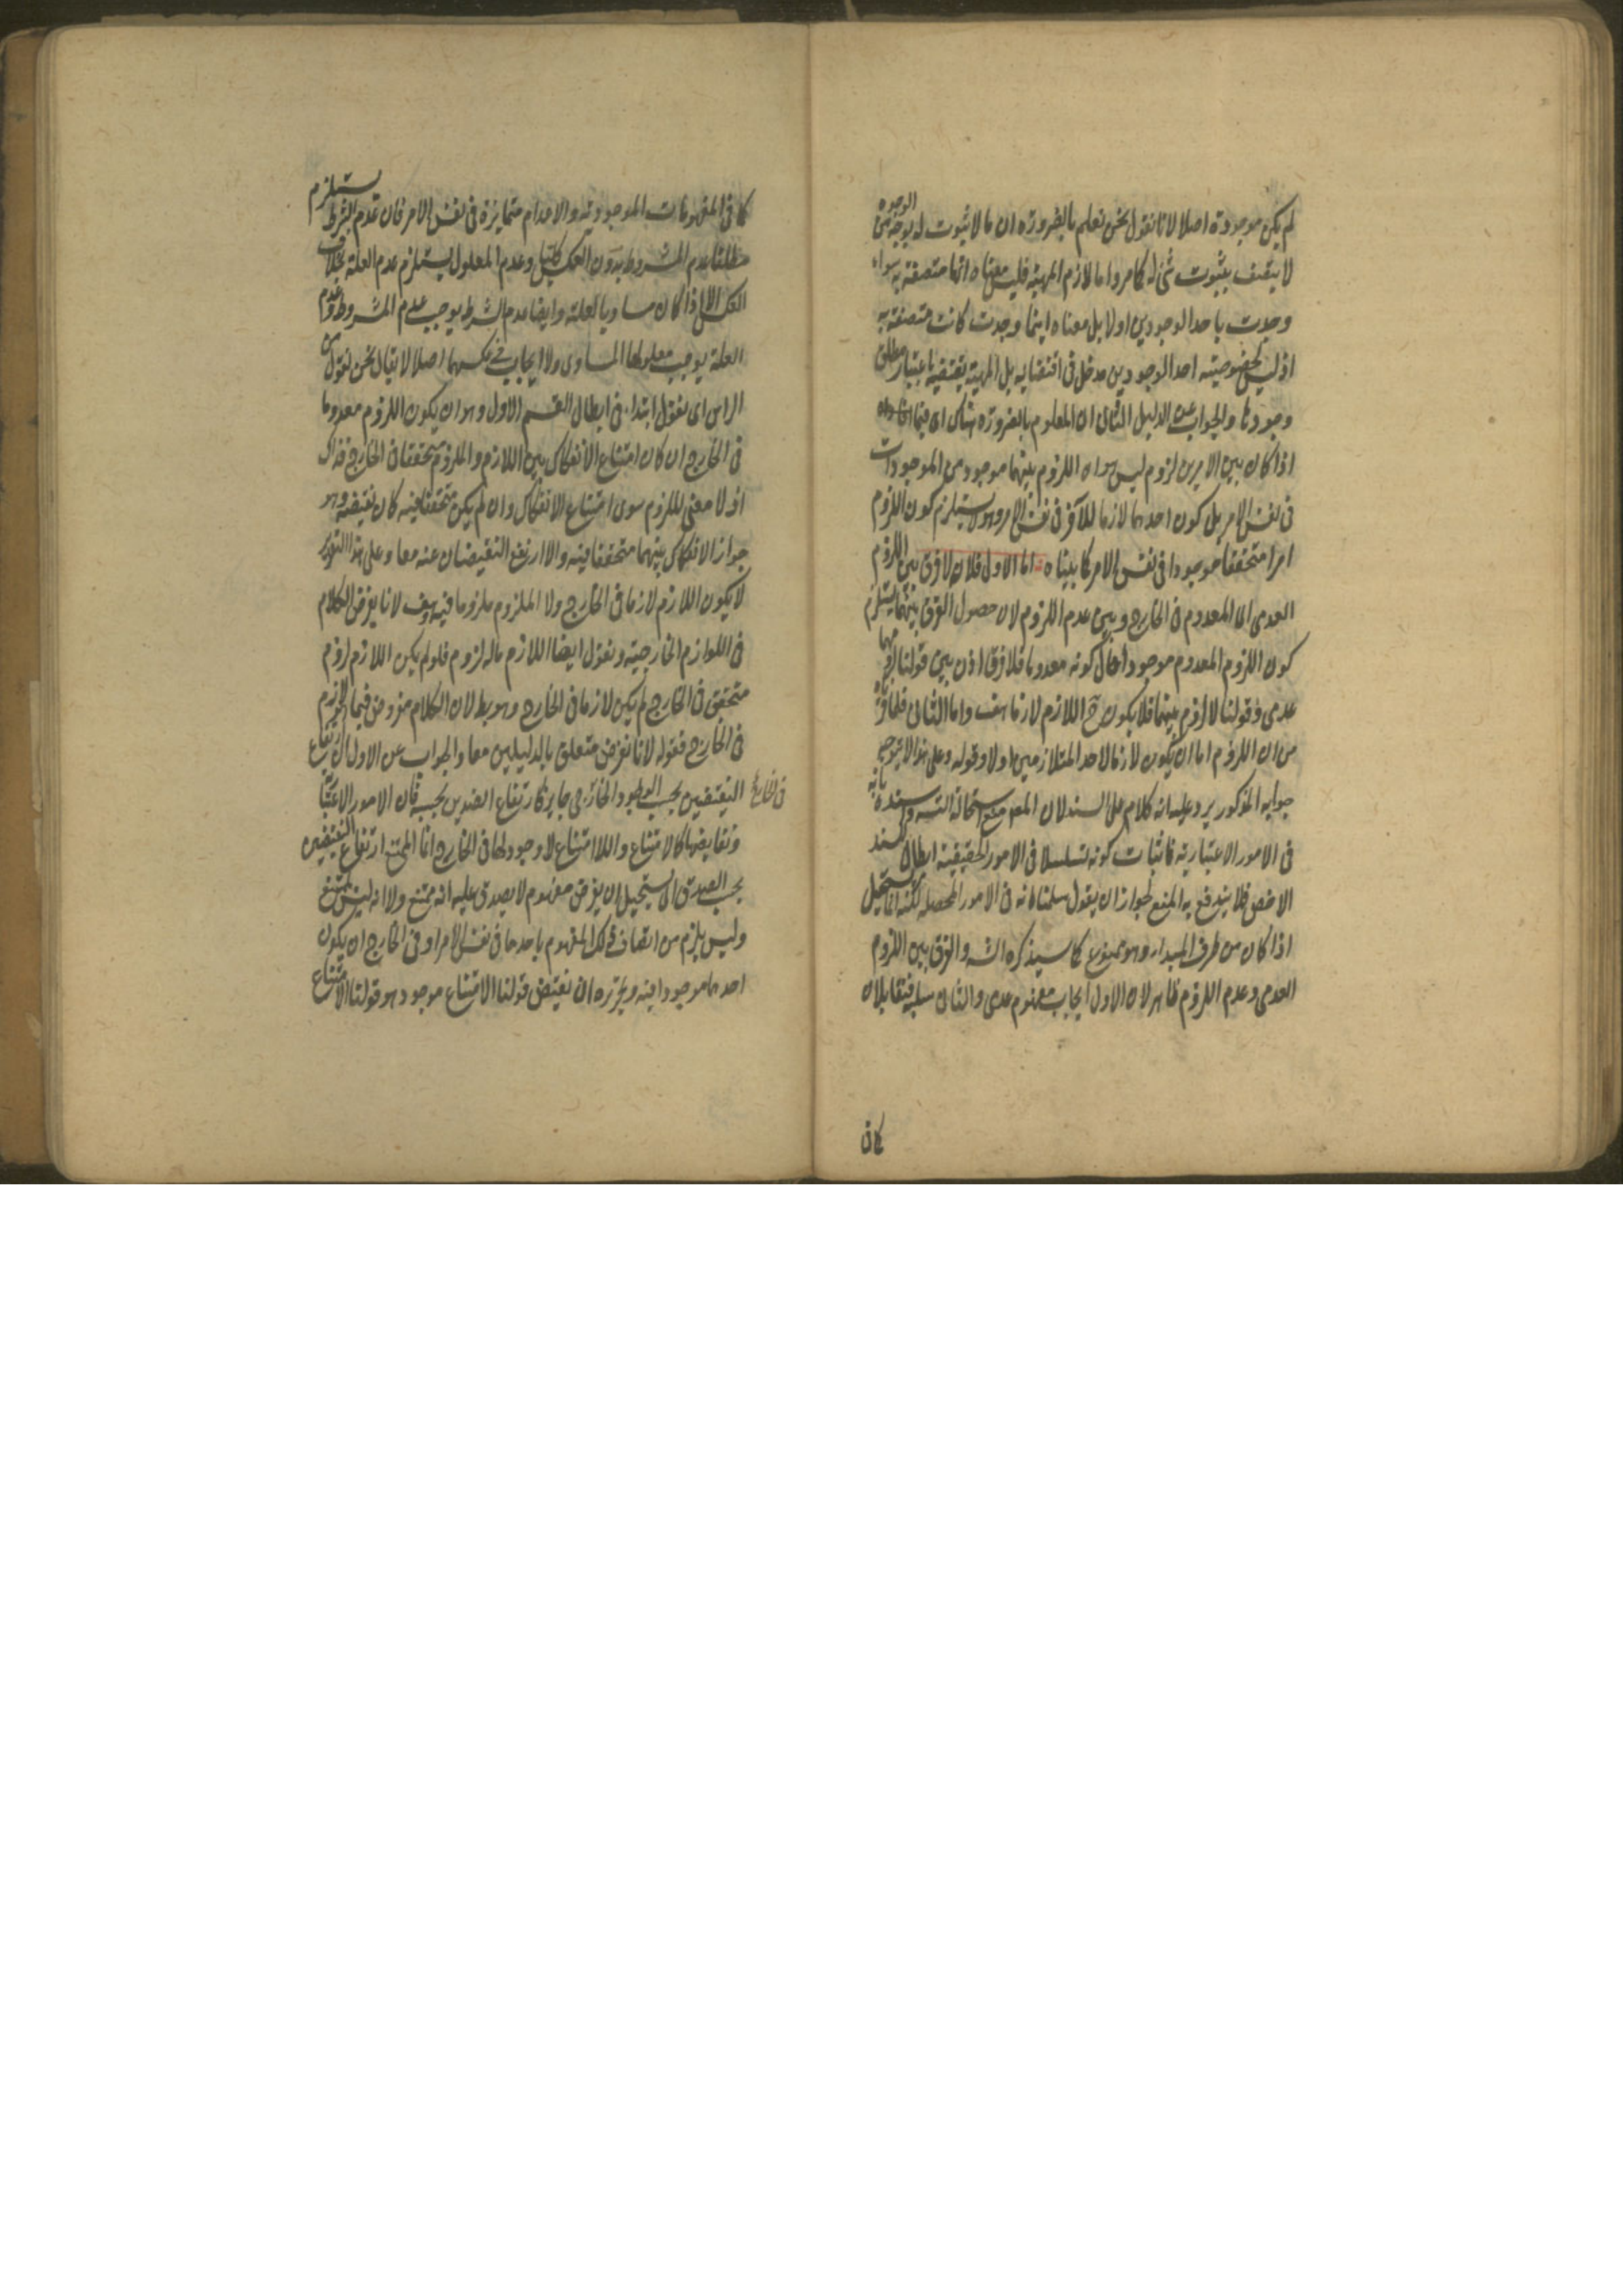 لم يكن موجودة اصلا لانا نقول نحن نعلم بالضرورة ان ما لا ثبوت له بوجه من الوجوه
لا يتصف بثبوت شئ له كما مر واما لازم المهية فليس معناه انها متصفة به سواء
وجدت باحد الوجودين اولا بل معناه اينما وجدت كانت متصفة به
اذ ليس لخصوصية احد الوجودين مدخل فى اقتضايه بل المهية يقتضيه باعتبار مطلق
وجودها والجواب عن الدليل الثانى ان المعلوم بالضرورة هناك اى فيما
اذا كان بين الامرين لزوم ليس هو ان اللزوم بينهما موجود من الموجودات
فى نفس الامر بل كون احدهما لازما للآخر فى نفس الامر وهو لا يستلزم كون اللزوم
امرا متحققا موجودا فى نفس الامر كما بيناه اما الاول فلانه لا فرق بين اللزوم
العدمى اى المعدوم فى الخارج وبين عدم اللزوم لان حصول الفرق بينهما يستلزم
كون اللزوم المعدوم موجودا حال كونه معدوما فلا فرق اذن بين قولنا لزومهما
عدمى وقولنا لا لزوم بينهما فلا يكون ح اللازم لازما هف واما الثانى فلما مر
من ان اللزوم اما ان يكون لازما لاحد المتلازمين اولا وقوله وعلى هذا لا يتوجه
جوابه المذكور يرد عليه انه كلام على السند لان المعم منع استحالة التسه وسنده بانه
فى الامور الاعتبارية فاثبات كونه تسلسلا فى الامور الحقيقية ابطال للسند
الاخص فلا يندفع به المنع لجواز ان يقول سلمنا انه فى الامور المحصلة لكنه انما يستحيل
اذا كان من طرف المبداء وهو ممنوع كما سيذكره الشه والفرق بين اللزوم
العدمى وعدم اللزوم ظاهر لان الاول ايجاب مفهوم عدمى والثانى سلبه فتقابلان
كما فى
كما فى المفهومات الموجودية والاعدام متمايزة فى نفس الامر فان عدم الشرط يستلزم
مطلقا عدم المشروط بدون العكس كليا وعدم المعلول يستلزم عدم العلة بخلاف
العكس الا اذا كان مساويا لعلته وايضا عدم الشرط يوجب عدم المشروط وعدم
العلة يوجب معلولها المساوى ولا ايجاب فى عكسهما اصلا لا يقال نحن نقول من
الراس اى نقول ابتداء فى ابطال القسم الاول وهو ان يكون اللزوم معدوما
فى الخارج ان كان امتناع الانفكاك بين اللازم والملزوم متحققا فى الخارج فذاك
اذ لا معنى للزوم سوى امتناع الانفكاك وان لم يكن متحققا فيه كان نقيضه وهو
جواز الانفكاك بينهما متحققا فيه والا ارتفع النقيضان عنه معا وعلى هذا التقدير
لا يكون اللازم لازما فى الخارج ولا الملزوم ملزوما فيه هف لانا نفرض الكلام
فى اللوازم الخارجية ونقول ايضا اللازم ماله لزوم فلو لم يكن اللازم لزوم
متحقق فى الخارج لم يكن لازما فى الخارج وهو بط لان الكلام مفروض فيما
فى الخارج فقوله لانا نفرض متعلق بالدليلين معا والجواب عن الاول ان ارتفاع
النقيضين بحسب الوجود الخارجى جايز كارتفاع الضدين بحسبه فان الامور الاعتبارية
فى الخارج
ونقايضها كالامتناع واللاامتناع لا وجود لها فى الخارج انما الممتنع ارتفاع النقيضين
بحسب الصدق اى يستحيل ان يفرض مفهوم لا يصدق عليه انه ممتنع ولا انه ليس بممتنع
وليس يلزم من اتصاف ذلك المفهوم باحدهما فى نفس الامر او فى الخارج ان يكون
احدهما موجودا فيه ويحرره ان نقيض قولنا الامتناع موجود هو قولنا الامتناع